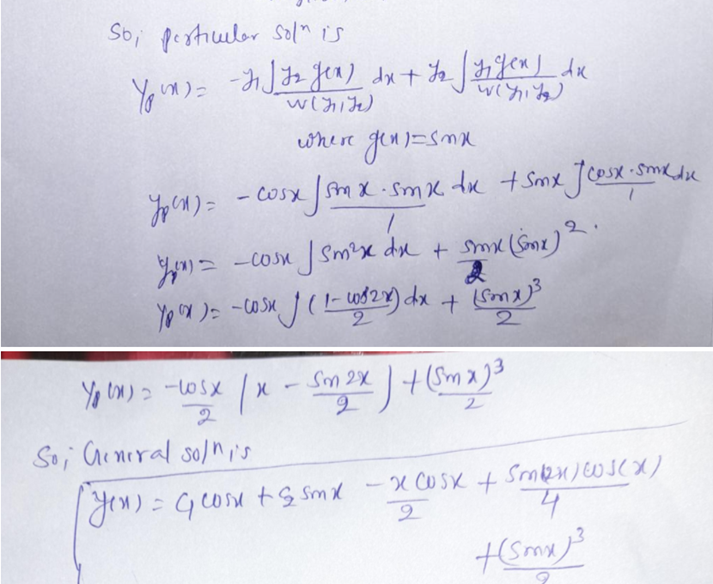 So, particular solⁿ is
yp(x) = -y₁∫ y₂ g(x) / W(y₁,y₂) dx + y₂ ∫ y₁ g(x) / W(y₁,y₂) dx
where g(x) = sinx
yp(x) = - cosx ∫ sin x · sin x / 1 dx + sinx ∫ cosx · sinx dx / 1
yp(x) = - cosx ∫ sin²x dx + sinx (sinx)² / 2 .
yp(x) = - cosx ∫ (1 - cos2x / 2) dx + (sinx)³ / 2
yp(x) = -cosx / 2 (x - sin 2x / 2) + (sin x)³ / 2
So, General solⁿ is
y(x) = C₁ cosx + C₂ sinx - x cosx / 2 + sin(2x) cos(x) / 4
+ (sinx)³ / 2